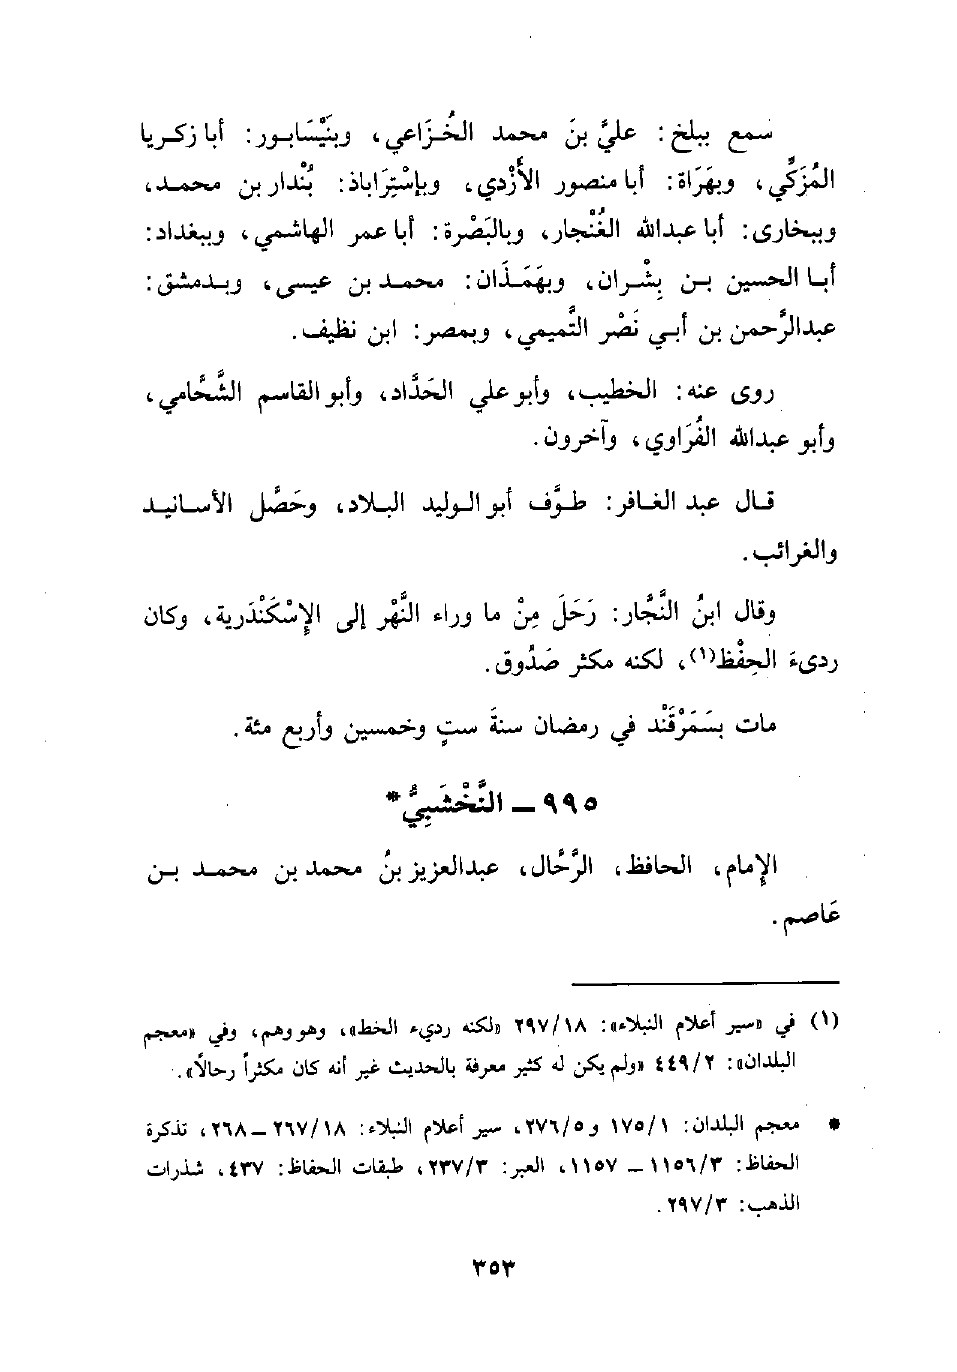 سمع ببلخ: عليَّ بنَ محمد الخُزَاعي، وبنَيْسَابور: أبا زكريا
المُزَكِّي، وبهَرَاة: أبا منصور الأَزْدي، وبإسْتِرَاباذ: بُنْدار بن محمد،
وببخارى: أبا عبدالله الغُنْجار، وبالبَصْرة: أبا عمر الهاشمي، وببغداد:
أبا الحسين بن بِشْران، وبهَمَذَان: محمد بن عيسى، وبدمشق:
عبدالرَّحمن بن أبي نَصْر التَّميمي، وبمصر: ابن نظيف.
روى عنه: الخطيب، وأبو علي الحَدَّاد، وأبو القاسم الشَّحَّامي،
وأبو عبدالله الفُرَاوي، وآخرون.
قال عبد الغافر: طوَّف أبو الوليد البلاد، وحَصَّل الأسانيد
والغرائب.
وقال ابنُ النَّجَّار: رَحَلَ مِنْ ما وراء النَّهْر إلى الإِسْكَنْدَرية، وكان
رديءَ الحِفْظ(١)، لكنه مكثر صَدُوق.
مات بسَمَرْقَنْد في رمضان سنةَ ستٍ وخمسين وأربع مئة.
٩٩٥ - النَّخْشَبِيُّ*
الإِمام، الحافظ، الرَّحَّال، عبدالعزيز بنُ محمد بن محمد بن
عَاصم.
(١) في «سير أعلام النبلاء»: ٢٩٧/١٨ «لكنه رديء الخط»، وهو وهم، وفي «معجم
البلدان»: ٤٤٩/٢ «ولم يكن له كثير معرفة بالحديث غير أنه كان مكثراً رحالاً».
* معجم البلدان: ١٧٥/١ و٢٧٦/٥، سير أعلام النبلاء: ٢٦٧/١٨ - ٢٦٨، تذكرة
الحفاظ: ١١٥٦/٣ - ١١٥٧، العبر: ٢٣٧/٣، طبقات الحفاظ: ٤٣٧، شذرات
الذهب: ٢٩٧/٣.
٣٥٣